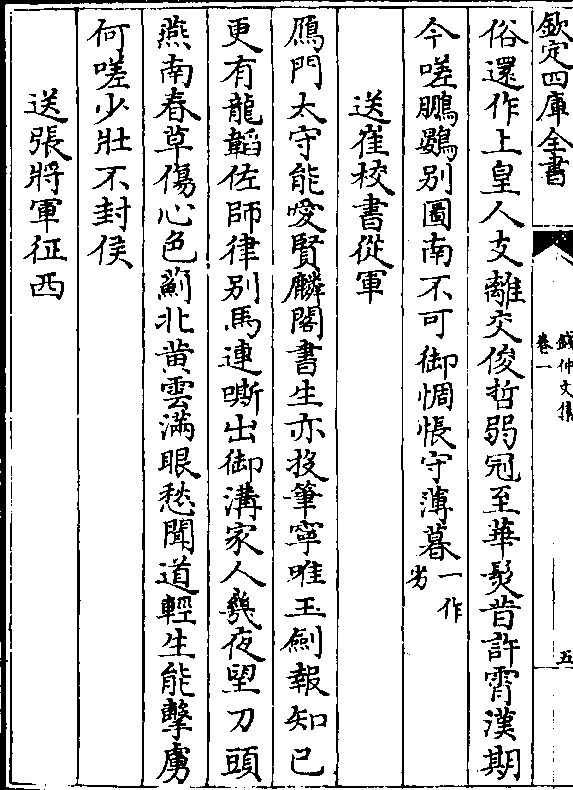 欽定四庫全書
錢仲文集
卷一
五
俗還作上皇人支離交俊哲弱冠至華髮昔許霄漢期
今嗟鵬鷃别圖南不可御惆悵守薄暮一作劣
送崔校書從軍
鴈門太守能愛賢麟閣書生亦投筆寧唯玉劍報知已
更有龍韜佐師律别馬連嘶出御溝家人㡬夜望刀頭
燕南春草傷心色薊北黄雲滿眼愁聞道輕生能擊虜
何嗟少壯不封侯
送張將軍征西